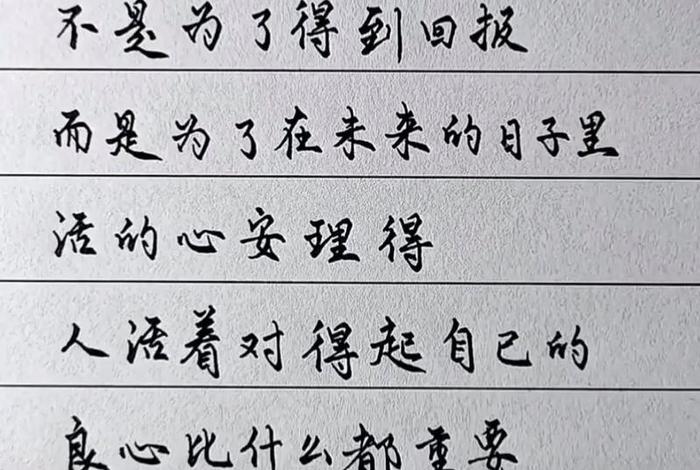 不是为了得到回报
而是为了在未来的日子里
活的心安理得
人活着对得起自己的
良心比什么都重要